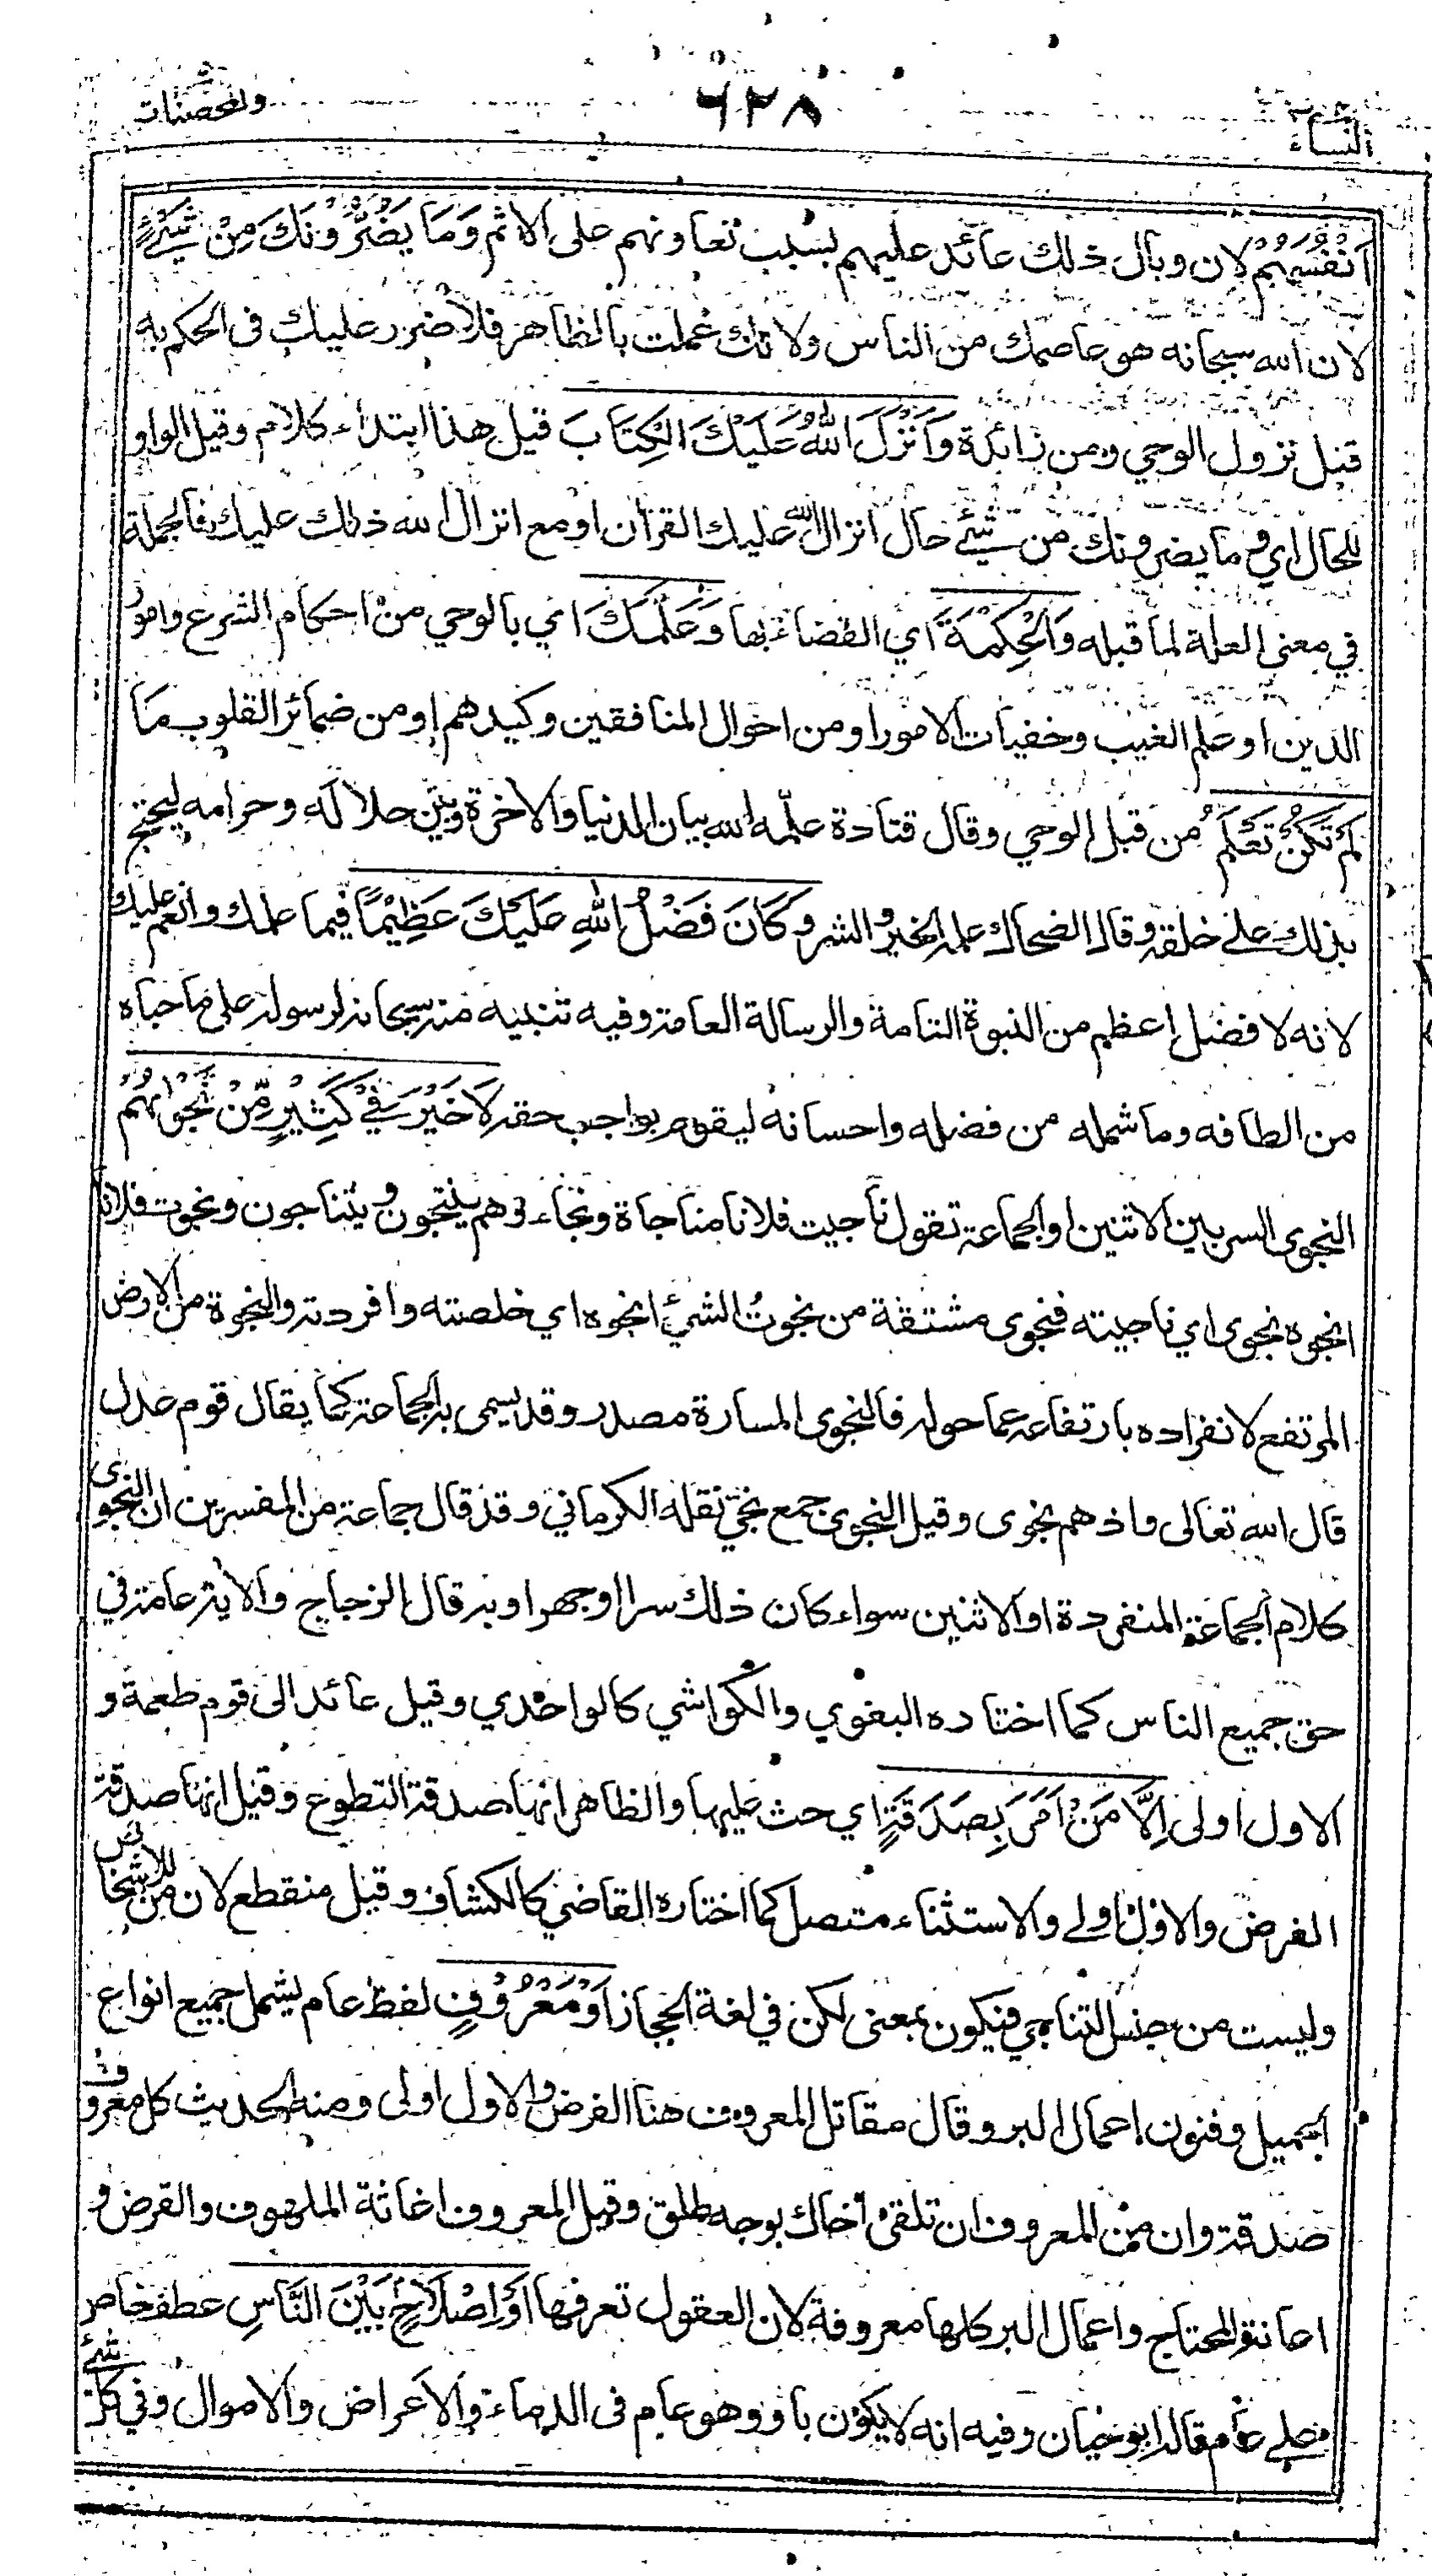 النساء ٦٢٨ والمحصنات
اَنْفُسَهُمْ لان وبال ذلك عائد عليهم بسبب تعاونهم على الاثم وَمَا يَضُرُّوْنَكَ مِنْ شَيْءٍ
لان الله سبحانه هو عاصمك من الناس ولانك عملت بالظاهر فلا ضرر عليك فى الحكم به
قبل نزول الوحي ومن زائدة وَاَنْزَلَ اللّٰهُ عَلَيْكَ الْكِتَابَ قيل هذا ابتداء كلام وقيل الواو
للحال اي وما يضرونك من شيئ حال انزال الله عليك القران او مع انزال الله ذلك عليك فالجملة
في معنى العلة لما قبله وَالْحِكْمَةَ اي القضاء بها وَعَلَّمَكَ اي بالوحي من احكام الشرع وامور
الدين او علم الغيب وخفيات الامور او من احوال المنافقين وكيدهم او من ضمائر القلوب مَا
لَمْ تَكُنْ تَعْلَمُ من قبل الوحي وقال قتادة علّمه الله بيان الدنيا والاخرة وبيّن حلاله وحرامه ليحتج
بذلك على خلقه وقال الضحاك علمه الخير والشر وَكَانَ فَضْلُ اللّٰهِ عَلَيْكَ عَظِيْمًا فيما علمك وانعم عليك
لانه لا فضل اعظم من النبوة التامة والرسالة العامة وفيه تنبيه منه سبحانه لرسوله على ما حباه
من الطافه وما شمله من فضله واحسانه ليقوم بواجب حقه لَا خَيْرَ فِيْ كَثِيْرٍ مِّنْ نَّجْوٰىهُمْ
النجوى السر بين الاثنين او الجماعة تقول ناجيت فلانا مناجاة ونجاء وهم ينتجون ويتناجون ونجوت فلانا
انجوه نجوى اي ناجيته فنجوى مشتقة من نجوتُ الشيئ انجوه اي خلصته وافردته والنجوة من الارض
المرتفع لانفراده بارتفاعه عما حوله فالنجوى المسارة مصدر وقد يسمى به الجماعة كما يقال قوم عدل
قال الله تعالى واذ هم نجوى وقيل النجوى جمع نجيّ نقله الكرماني وقد قال جماعة من المفسرين ان النجوى
كلام الجماعة المنفردة او الاثنين سواء كان ذلك سرا او جهرا وبه قال الزجاج والاية عامة في
حق جميع الناس كما اختاره البغوي والكواشي كالواحدي وقيل عائد الى قوم طعمة و
الاول اولى اِلَّا مَنْ اَمَرَ بِصَدَقَةٍ اي حث عليها والظاهر انها صدقة التطوع وقيل انها صدقة
الفرض والاول اولى والاستثناء متصل كما اختاره القاضي كالكشاف وقيل منقطع لان من للاشخاص
وليست من جنس التناجي فيكون بمعنى لكن في لغة الحجاز اَوْ مَعْرُوْفٍ لفظ عام يشمل جميع انواع
الجميل وفنون اعمال البر وقال مقاتل المعروف هنا الفرض والاول اولى ومنه الحديث كل معروف
صدقة وان من المعروف ان تلقى اخاك بوجه طلق وقيل المعروف اغاثة الملهوف والقرض و
اعانة المحتاج واعمال البر كلها معروفة لان العقول تعرفها اَوْ اِصْلَاحٍ بَيْنَ النَّاسِ عطف خاص
على عام قاله ابو حيان وفيه انه لا يكون باو وهو عام فى الدماء والاعراض والاموال وفي كل شيئ